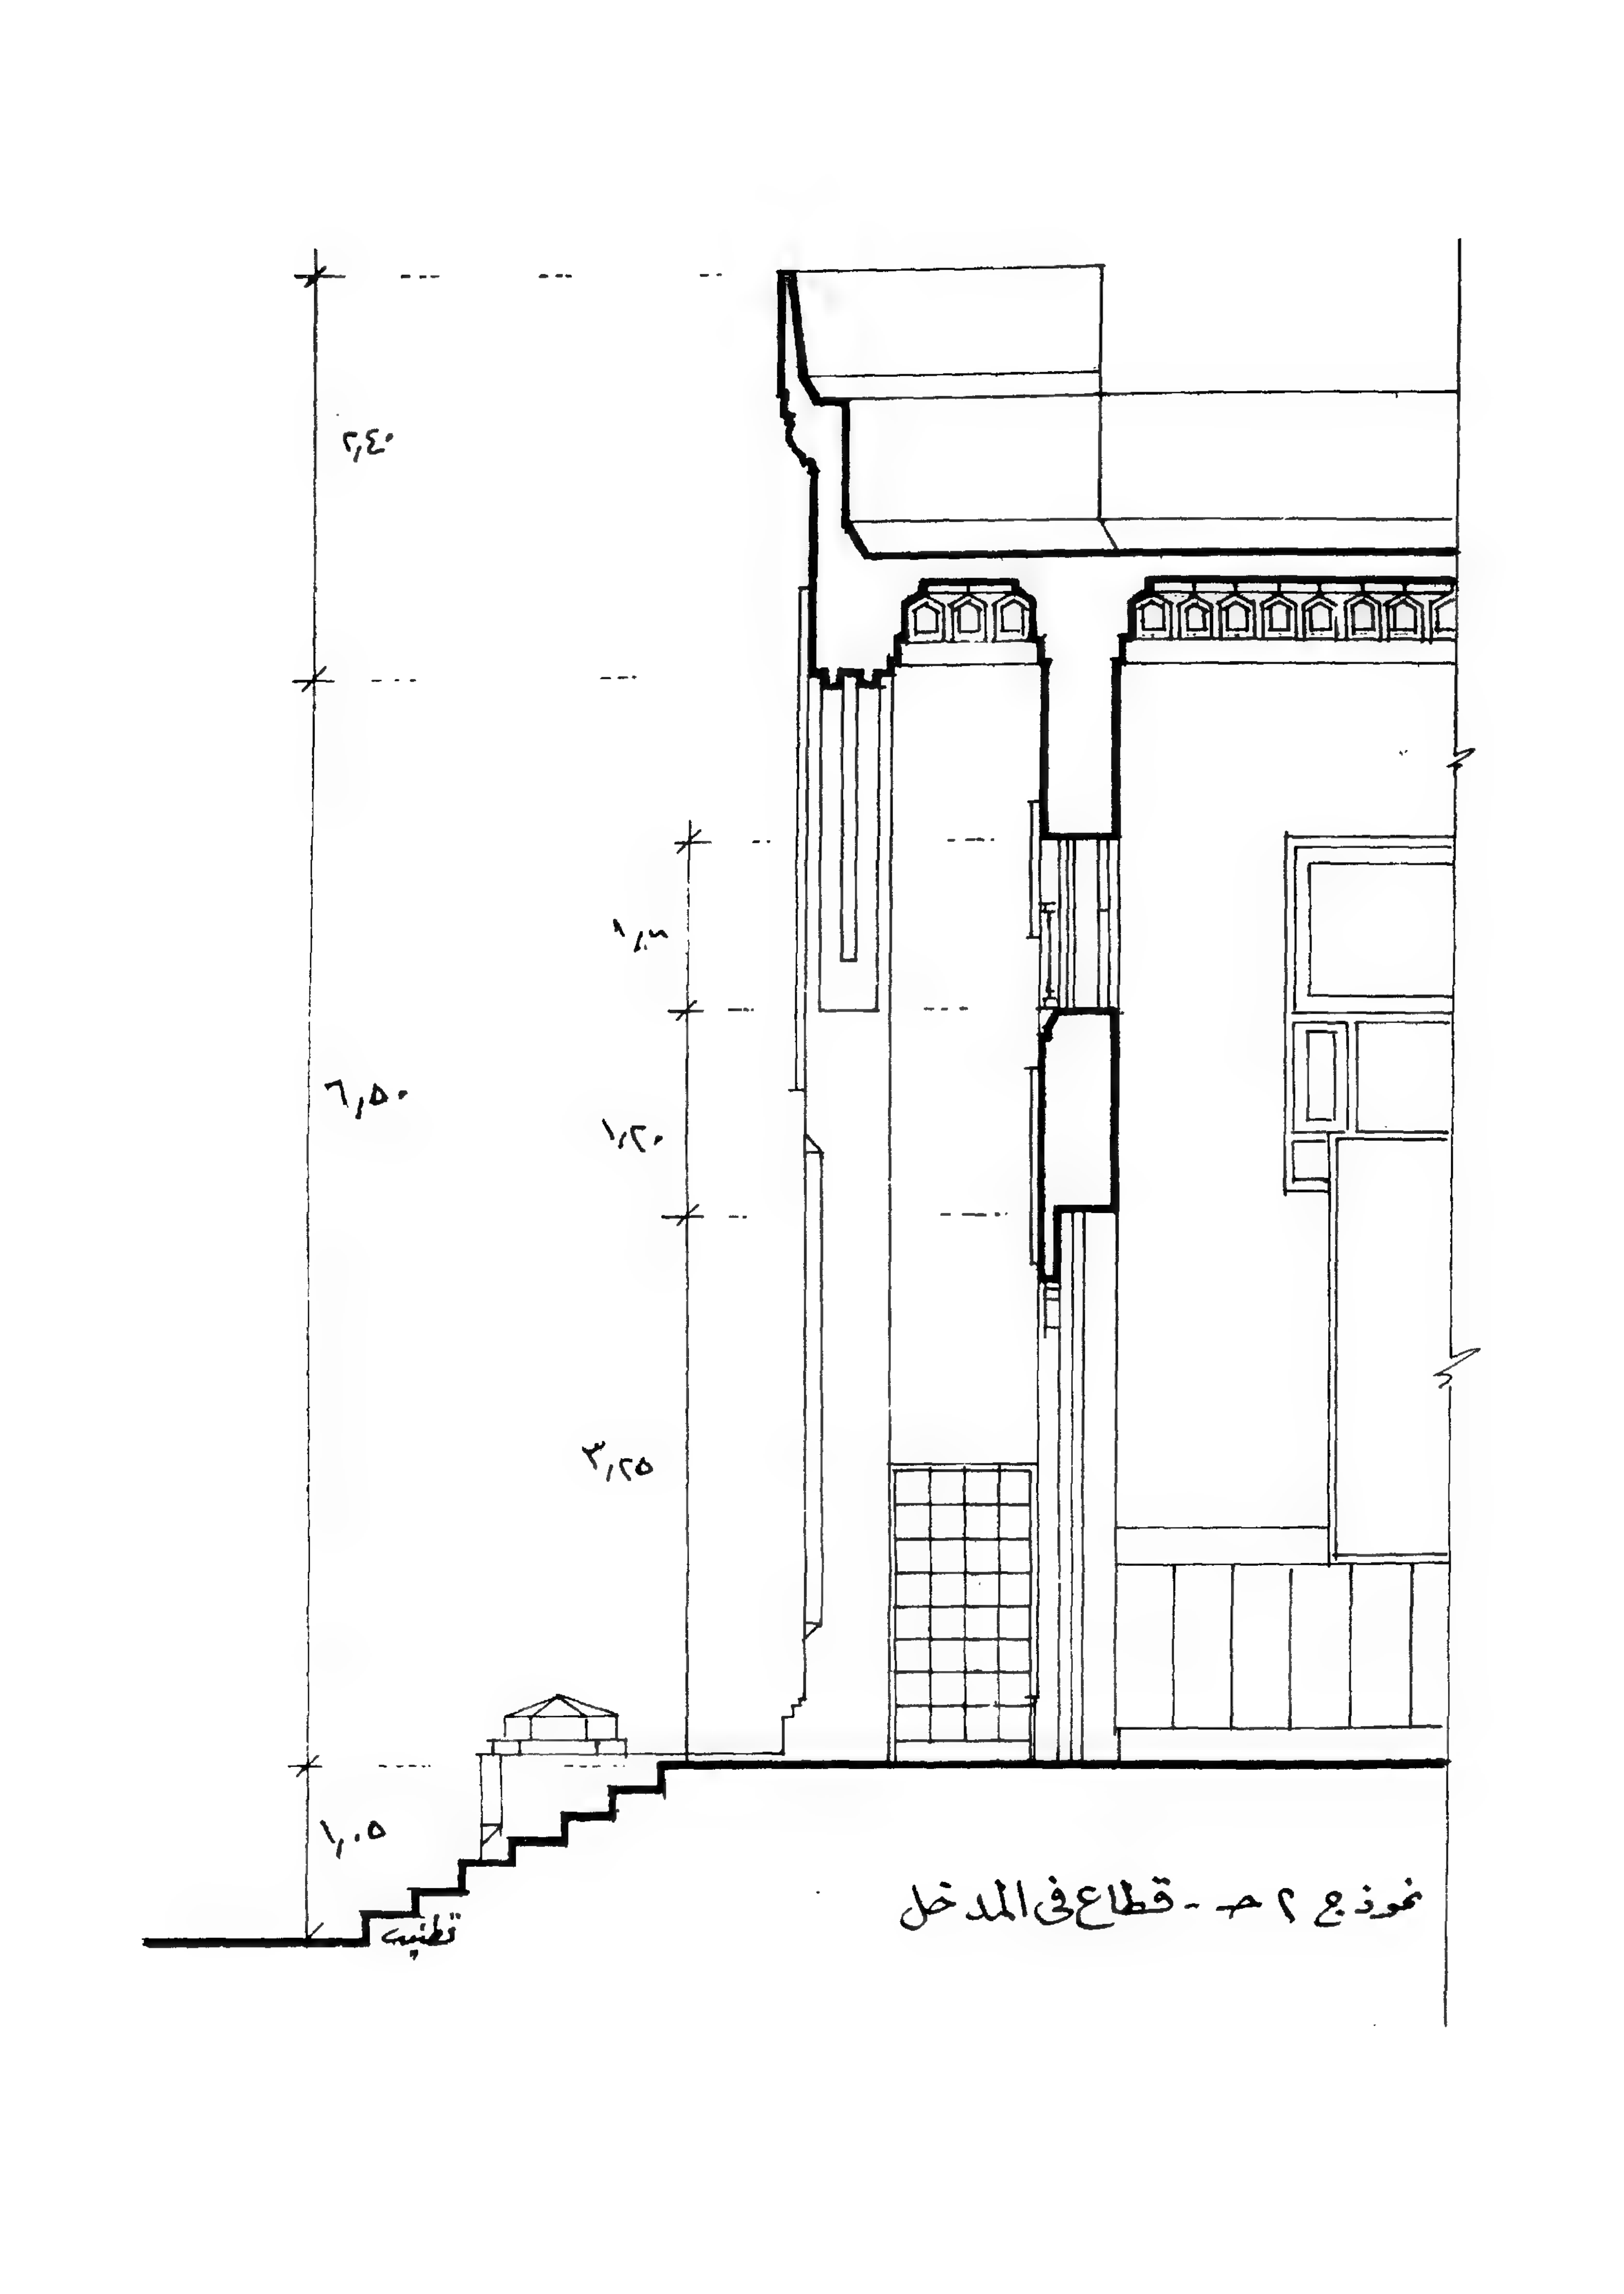 ٢,٤٠
٦,٥٠
١,٢٠
٣,٢٥
١,٠٥
نموذج ٢ حـ - قطاع فى المدخل